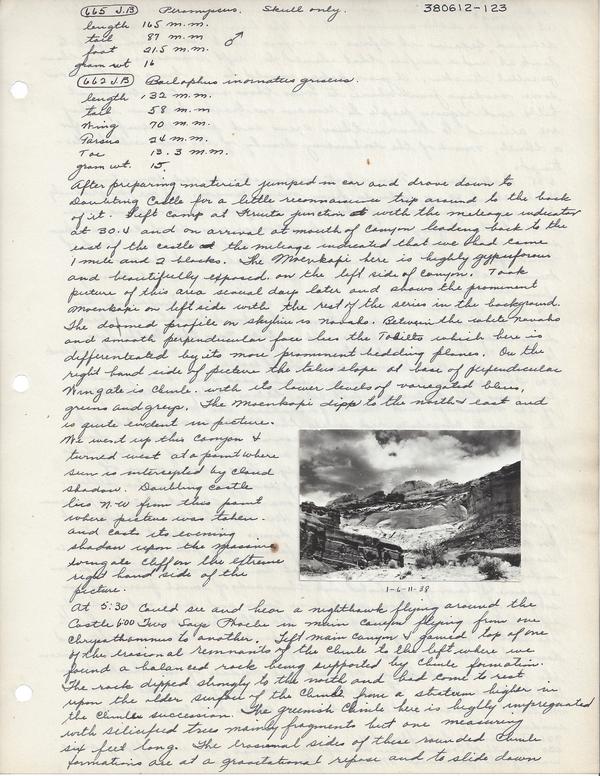 665 J.B Peromyscus. Skull only. 380612-123
length 165 m.m.
tail 87 m.m ♂
foot 21.5 m.m.
gram wt 16
662 J.B Baeolophus inornatus griseus.
length 132 m.m.
tail 58 m.m
Wing 70 m.m.
Tarsus 24 m.m.
Toe 13.3 m.m.
gram wt. 15.
After preparing material jumped in car and drove down to
Doubting Castle for a little reconnaissance trip around to the back
of it. Left camp at Fruita junction with the mileage indicator
at 30.4 and on arrival at mouth of Canyon leading back to the
east of the castle the mileage indicated that we had come
1 mile and 2 blocks. The Moenkopi here is highly gypsiferous
and beautifully exposed, on the left side of canyon. Took
picture of this area several days later and shows the prominent
Moenkopi on left side with the rest of the series in the background.
The domed profile on skyline is Navaho. Between the white Navaho
and smooth perpendicular face lies the Todilto which here is
differenteated by its more prominent bedding planes. On the
right hand side of picture the talus slope at base of perpendicular
Wingate is Chinle with its lower levels of variegated blues,
greens and greys. The Moenkopi dipps to the north & east and
is quite evident in picture.
We went up this Canyon &
turned west at a point where
sun is intercepted by cloud
shadow. Doubting Castle
lies N.W from this point
where picture was taken.
and casts its evening
shadow upon the massive
wingate Cliff on the extreme
right hand side of the
picture.
1-6-11-38
At 5:30 Could see and hear a nighthawk flying around the
Castle 6:00 Two Says Phoebe in main canyon flying from one
Chrysothamnus to another. Left main Canyon & gained top of one
of the erosional remnants of the Chinle to the left where we
found a balanced rock being supported by Chinle formation.
The rock dipped strongly to the north and had come to rest
upon the older surface of the Chinle from a stratum higher in
the Chinle succession. The greenish Chinle here is highly impregnated
with silicified trees mainly fragments but one measuring
six feet long. The erosional sides of these rounded Chinle
formations are at a gravitational repose and to slide down